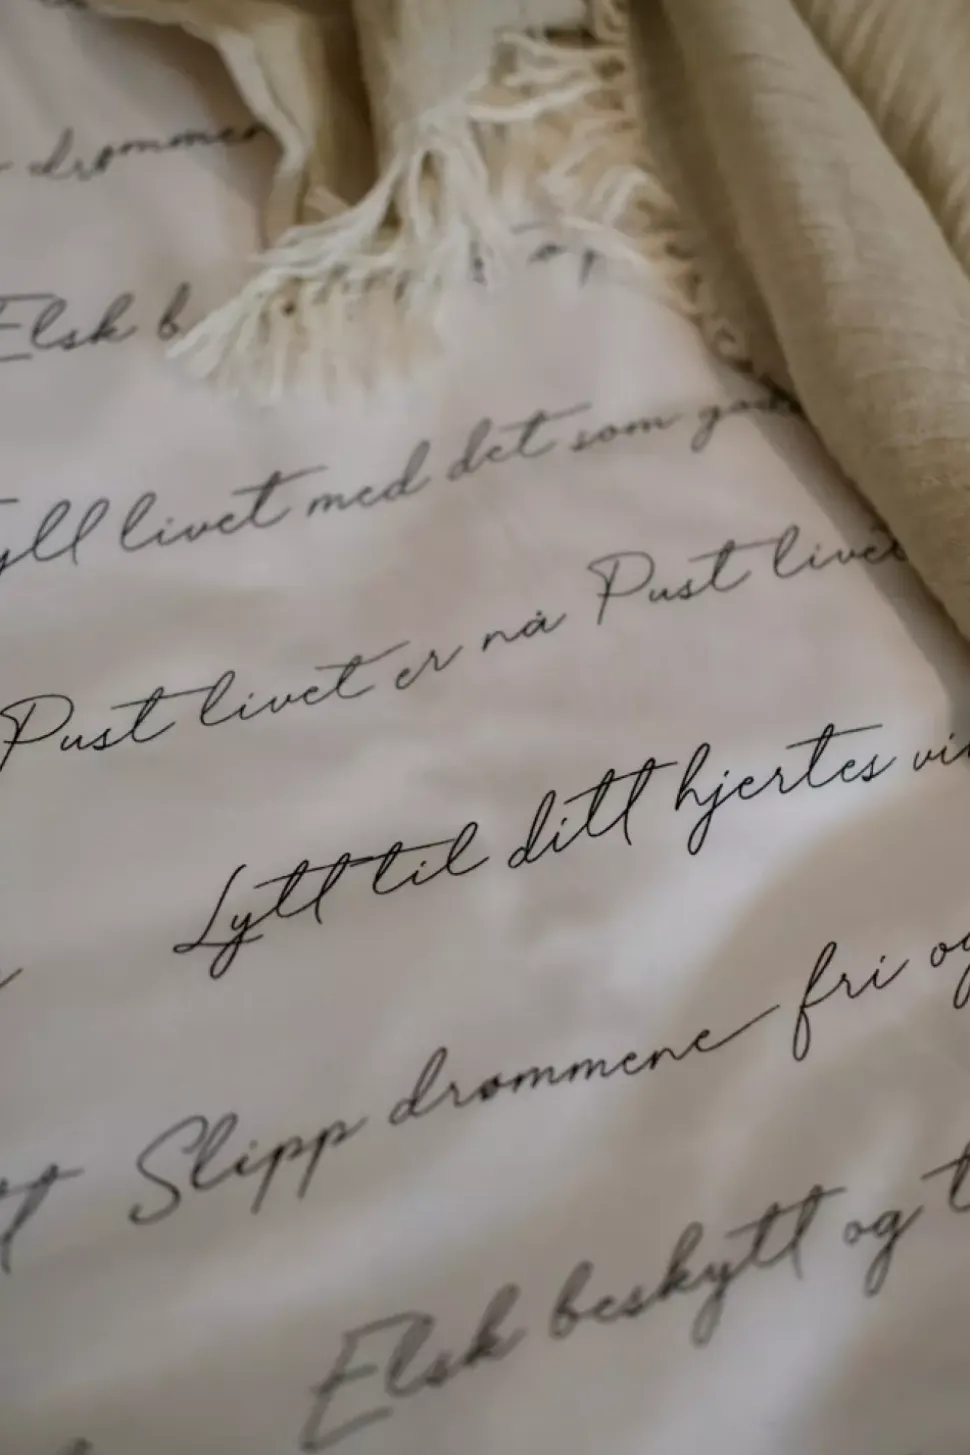 drømmen
Elsk b
yll livet med det som
Pust livet er nå Pust livet
Lytt til ditt hjertes
Slipp drømmene fri og
Elsk beskytt og